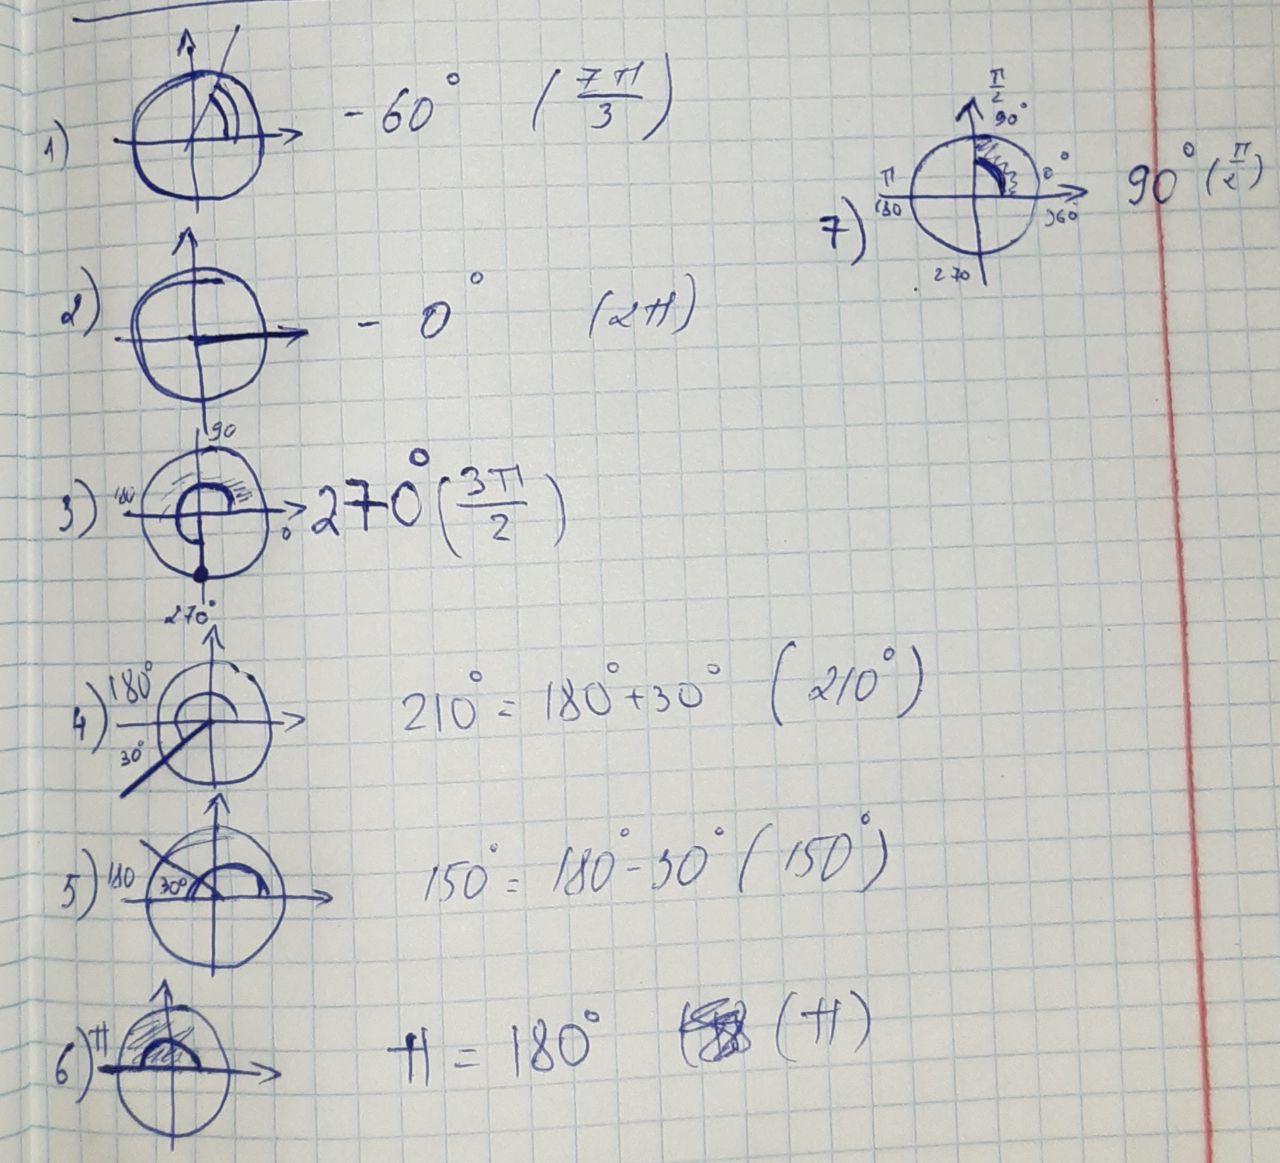 1) - 60° (7π/3)
2) - 0° (2π)
3) 90 180 0 270° 270° (3π/2)
4) 180° 30° 210° = 180° + 30° (210°)
5) 180 30° 150° = 180° - 30° (150°)
6) π π = 180° (π)
7) π/2 90° π 180 0° 360° 270 90° (π/2)